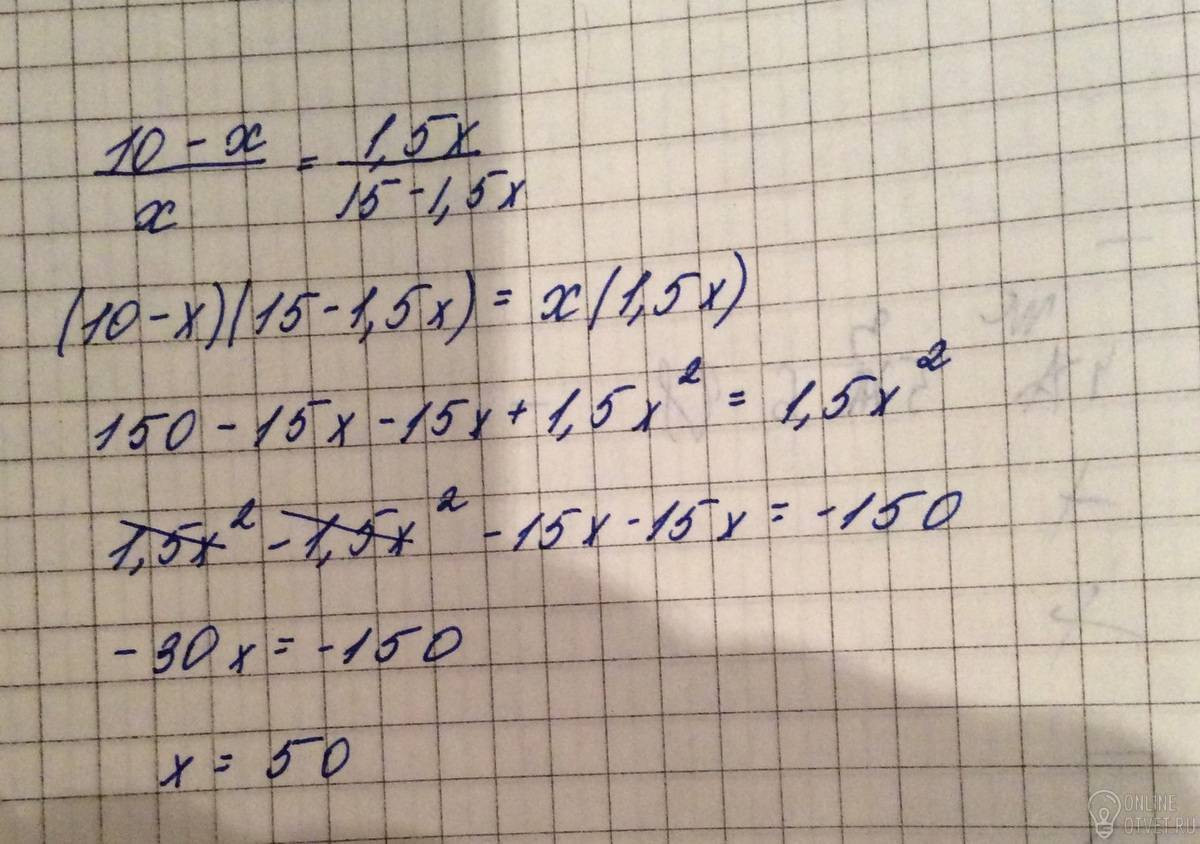 10 - x / x = 1,5x / 15 - 1,5x
(10 - x)(15 - 1,5x) = x(1,5x)
150 - 15x - 15x + 1,5x² = 1,5x²
1,5x² - 1,5x² - 15x - 15x = -150
-30x = -150
x = 50
ONLINE
OTVET.RU